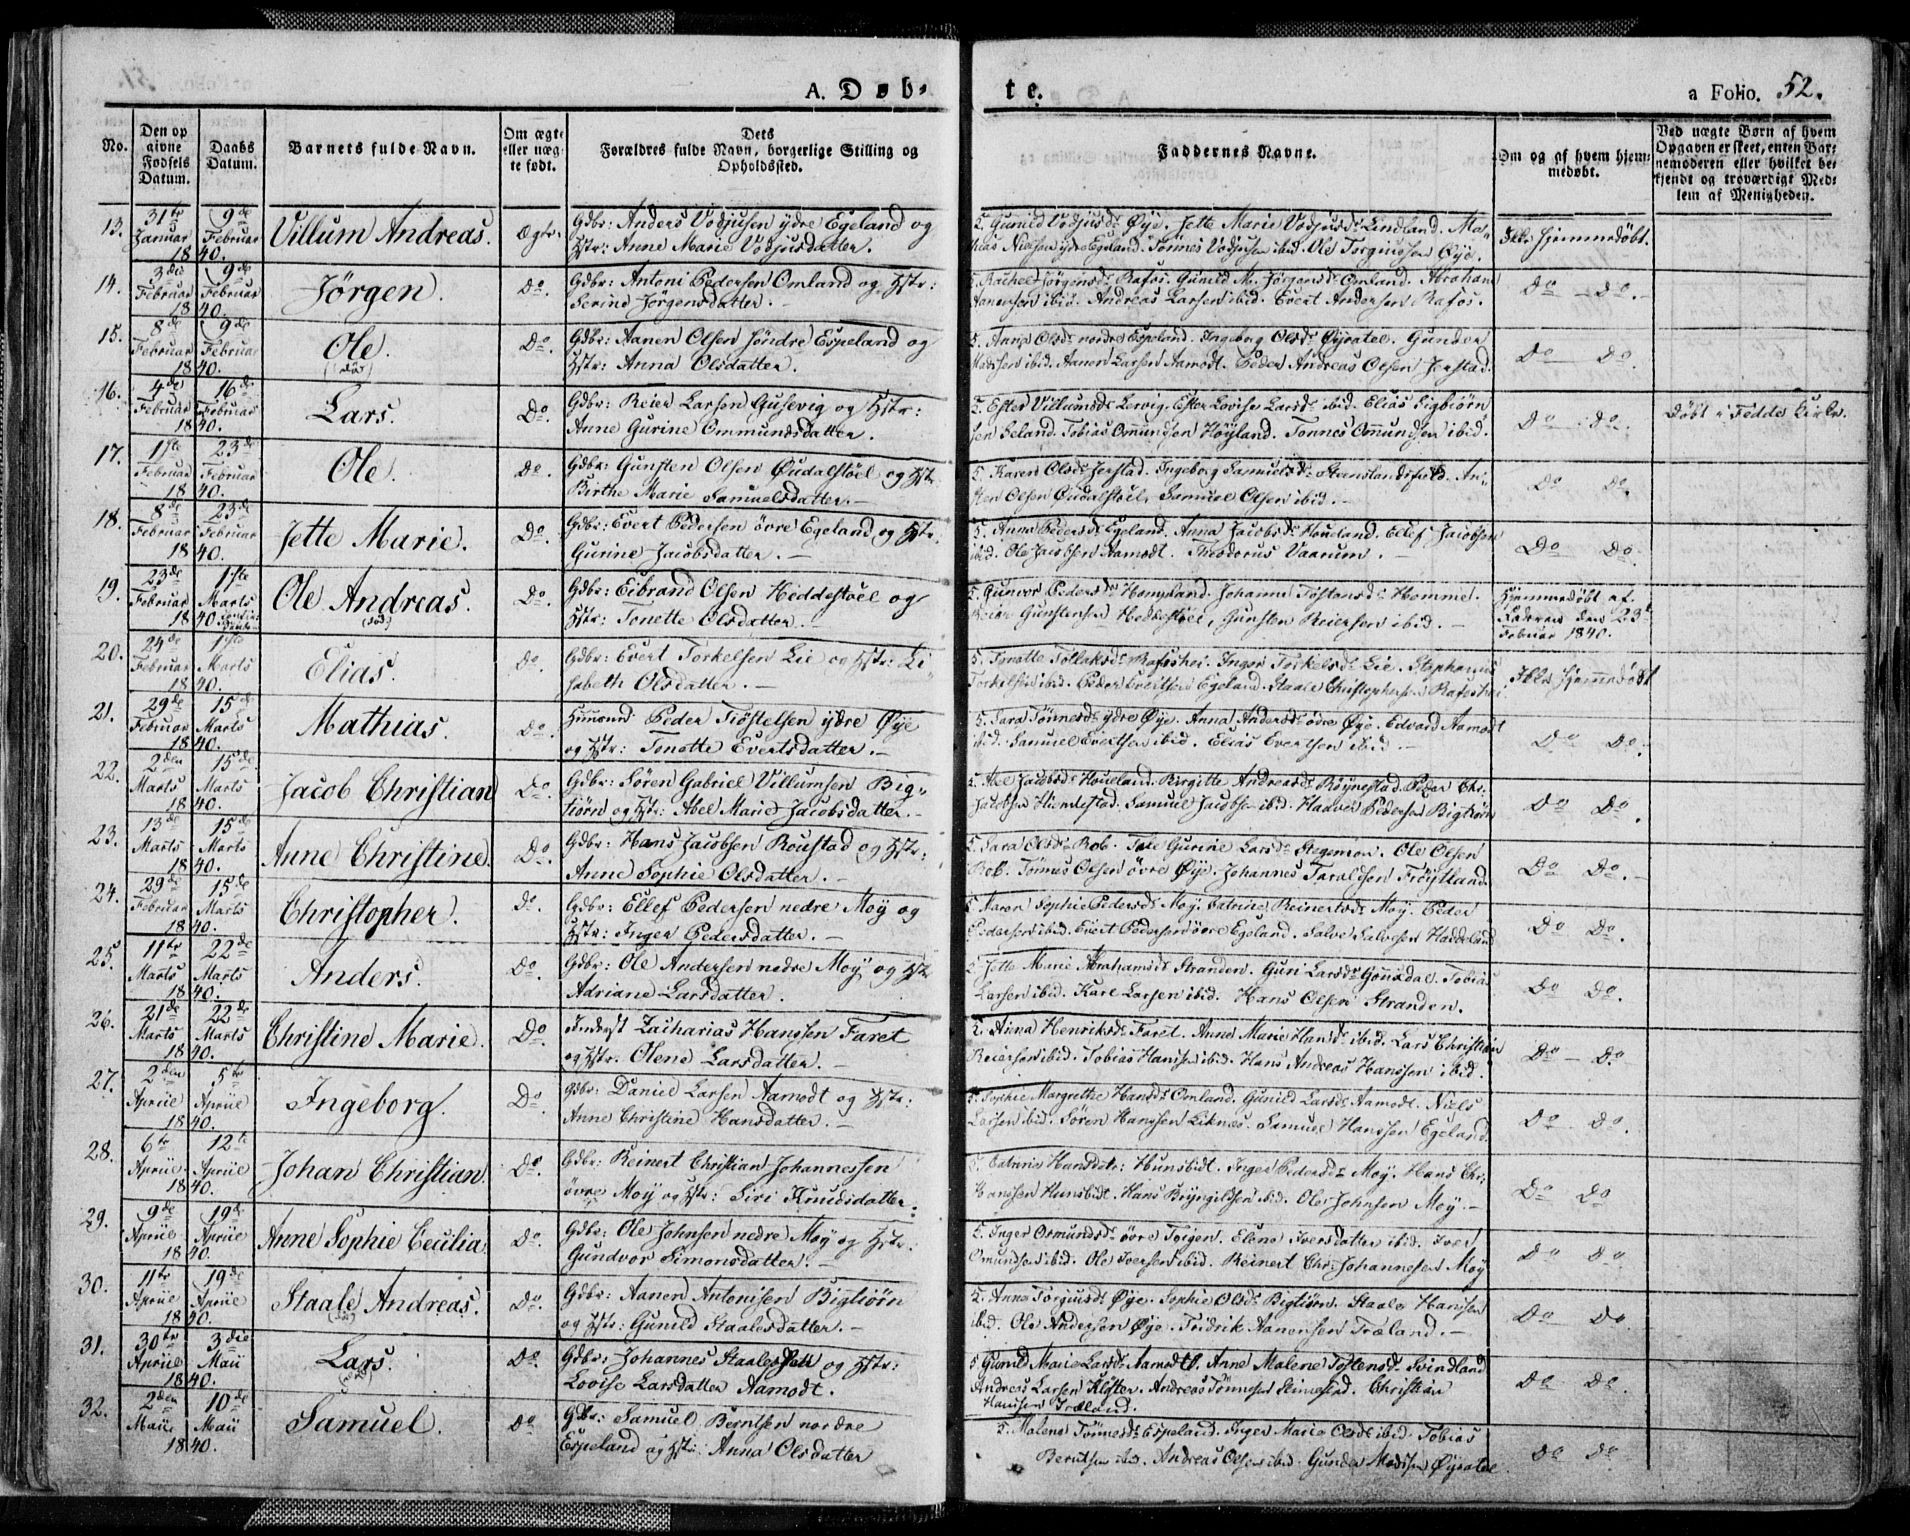 A. Døb-
te.
a Folio. 52.
No.
Den op
givne
Fødsels
Datum.
Daabs
Datum.
Barnets fulde Navn.
Om ægte
eller uæg-
te født.
Dets
Forældres fulde Navn, borgerlige Stilling og
Opholdssted.
Faddernes Navne.
Om og af hvem hjem-
medøbt.
Ved uægte Børn af hvem
Opgaven er skeet, enten Bar-
nemoderen eller hvilket be-
kjendt og troværdigt Med-
lem af Menigheden.
13. 31te Januar 1840. 9de Februar Villum Andreas. Ægte.
Gdbr: Anders Vodjusen ydre Egeland og
Hstr: Anne Marie Vodjusdatter.
5. Gunild Vodjusd: Øye. Jette Marie Vodjusd: Lindland. Ma-
thias Nielsen ydre Egeland. Tønnes Vodjusen ibid. Ole Torgiusen Øye.
Ikke hjemmedøbt.
14. 3die Februar 1840. 9de Februar Jörgen. Do.
Gdbr: Antoni Pedersen Omland og Hstr:
Serine Jörgensdatter.
5. Rachel Jörgensd: Rafos. Gunild M. Jörgensd: Omland. Abraham
Aanensen ibid. Andreas Larsen ibid. Evert Andersen Rafos.
Do - Do.
15. 8de Februar 1840. 9de Februar Ole. (död) Do.
Gdbr: Aanen Olsen söndre Espeland og
Hstr: Anna Olsdatter.
5. Anna Olsd: nordre Espeland. Ingeborg Olsd: Øysatel. Gunder
Madssen ibid. Aanen Larsen Aamodt. Peder Andreas Olsen Jerstad.
Do Do
16. 4de Februar 1840. 16de Februar Lars. Do.
Gdbr: Reier Larsen Gusevig og Hstr:
Anne Gurine Ommundsdatter.
5. Ester Villumsd: Lervig. Ester Lovise Larsd: ibid. Elias Sigbiörn-
sen Seland. Tobias Omundsen Höyland. Tonnes Omundsen ibid.
Do Do.
Døbt i Fedde Kirke.
17. 1ste Februar 1840. 23de Februar Ole. Do.
Gdbr: Gunsten Olsen Qudalstöel og Hstr
Birthe Marie Samuelsdatter.
5. Karen Olsd: Jerstad. Ingeborg Samuelsd:
Olsen Qudalstöel. Samuel Olsen ibid.
Do Do.
18. 8de Februar 1840. 23de Februar Jette Marie. Do.
Gdbr: Evert Pedersen övre Egeland og Hstr.
Gurine Jacobsdatter.
5. Anna Pedersd: Egeland. Anna Jacobsd: Houland. Ellef Jacobsen
ibid. Ole Jacobsen Aamodt. Theodorus Vaarum.
Do Do.
19. 23de Februar 1840. 1ste Marts Ole Andreas. (död) Do.
Gdbr: Eibrand Olsen Heddestöel og
Hstr: Tonette Olsdatter.
5. Gunvor Pedersd: Hompland. Johanne Töstensd: Hommel.
Reier Gunstensen Heddestöel, Gunsten Reiersen ibid.
Hjemmedöbt af
Faderen den 23de
Februar 1840.
20. 24de Februar 1840. 1ste Marts Elias. Do.
Gdbr: Evert Torkelsen Lie og Hstr: Li-
sabeth Olsdatter.
5. Tonette Tollaksd: Rafoshei. Inger Torkelsd: Lie. Stephanus
Torkelsen ibid. Peder Evertsen Egeland. Staale Christophersen Rafoshei.
Ikke hjemmedöbt
21. 29de Februar 1840. 15de Marts Mathias. Do.
Huusmd: Peder Tiöstelsen ydre Øye
og Hstr: Tonette Evertsdatter.
5. Sara Tönnesd: ydre Øye. Anna Andersd: övre Øye. Edvard Aamodt
ibid. Samuel Evertsen ibid. Elias Evertsen ibid
Do Do.
22. 2den Marts 1840. 15de Marts Jacob Christian Do.
Gdbr: Sören Gabriel Villumsen Big-
tiörn og Hstr: Abel Marie Jacobsdatter.
5. Abel Jacobsd: Houeland. Birgitte Andreasd: Röynestad. Peder Chr:
Jacobsen Hindestad. Samuel Jacobsen ibid. Haaver Pedersen Bigtiörn
Do Do.
23. 13de Marts 1840. 15de Marts Anne Christine. Do.
Gdbr: Hans Jacobsen Roustad og Hstr:
Anne Sophie Olsdatter.
5. Sara Olsd: Rob. Tale Gurine Larsd: Stegemon. Ole Olsen
Rob. Tönnes Olsen övre Øye. Johannes Taraldsen Tröytland.
Do Do.
24. 29de Februar 1840. 15de Marts Christopher. Do.
Gdbr: Ellef Pedersen nedre Moy og
Hstr: Inger Pedersdatter.
5. Karen Sophie Pedersd: Moy. Catrine Reinertsd: Moy. Peder
Pedersen ibid. Evert Pedersen övre Egeland. Salve Salvesen Haddeland
Do Do.
25. 11te Marts 1840. 22de Marts Anders. Do.
Gdbr: Ole Andersen nedre Moy og Hstr
Adriane Larsdatter.
5. Jette Marie Abrahamsd: Stranden. Guri Larsd: Gonsdal. Tobias
Larsen ibid. Karl Larsen ibid. Hans Olsen Stranden.
Do Do.
26. 21de Marts 1840. 22de Marts Christine Marie. Do
Inderst Zacharias Hanssen Faret
og Hstr. Olene Larsdatter.
5. Anna Henriksd: Faret. Anne Marie Hansd: ibid. Lars Christian
Reiersen ibid. Tobias Hanssen ibid. Hans Andreas Hanssen ibid.
Do - Do.
27. 2den Apriil 1840. 5te Apriil Ingeborg. Do.
Gdbr: Daniel Larsen Aamodt og Hstr:
Anne Christine Hansdatter.
5. Sophie Margrethe Hansd: Omland. Gunild Larsd: Aamodt. Niels
Larsen ibid. Sören Hanssen Liknes. Samuel Hanssen Egeland.
Do Do.
28. 6te Apriil 1840. 12te Apriil Johan Christian Do.
Gdbr: Reinert Christian Johannessen
övre Moy og Hstr: Siri Knudsdatter.
5. Catrine Hansdatr: Hunsbidt. Inger Pedersd: Moy. Hans Chr:
Hanssen Hunsbidt. Hans Bryngildsen ibid. Ole Johnsen Moy.
Do Do
29. 9de Apriil 1840. 19de Apriil Anne Sophie Cecilia Do.
Gdbr: Ole Johnsen nedre Moy og Hstr:
Gundvor Simonsdatter.
5. Inger Osmundsd: övre Egeland. Elene Iversdatter ibid. Iver
Omundsen ibid. Ole Iversen ibid. Reinert Chr: Johannesen Moy
Do Do.
30. 11te Apriil 1840. 19de Apriil Staale Andreas. (död) Do.
Gdbr: Aanen Antonisen Bigtiörn
og Hstr: Gunild Staalesdatter.
5. Anna Torgiusd: Øye. Sophie Olsd: Bigtiörn. Staale Hanssen
ibid. Ole Andersen Øye. Fridrik Aanensen Træland.
Do Do
31. 30te Apriil 1840. 3die Maii Lars. (död) Do.
Gdbr: Johannes Staalesen og Hstr:
Lovise Larsdatter Aamodt.
5 Gunild Marie Larsd: Aamodt. Anne Malene Tostensd: Svindland
Andreas Larsen Klöster. Andreas Tönnesen Stimestad. Christian
Hanssen Træland.
Do Do.
32. 2den Maii 1840. 10de Maii Samuel. Do
Gdbr: Samuel Berntsen nordre
Espeland og Hstr: Anna Olsdatter
5. Malene Tönnesd: Espeland. Inger Marie Olsd: ibid. Tobias
Berntsen ibid. Andreas Olsen ibid. Gunder Madssen Øysatel
Do Do.